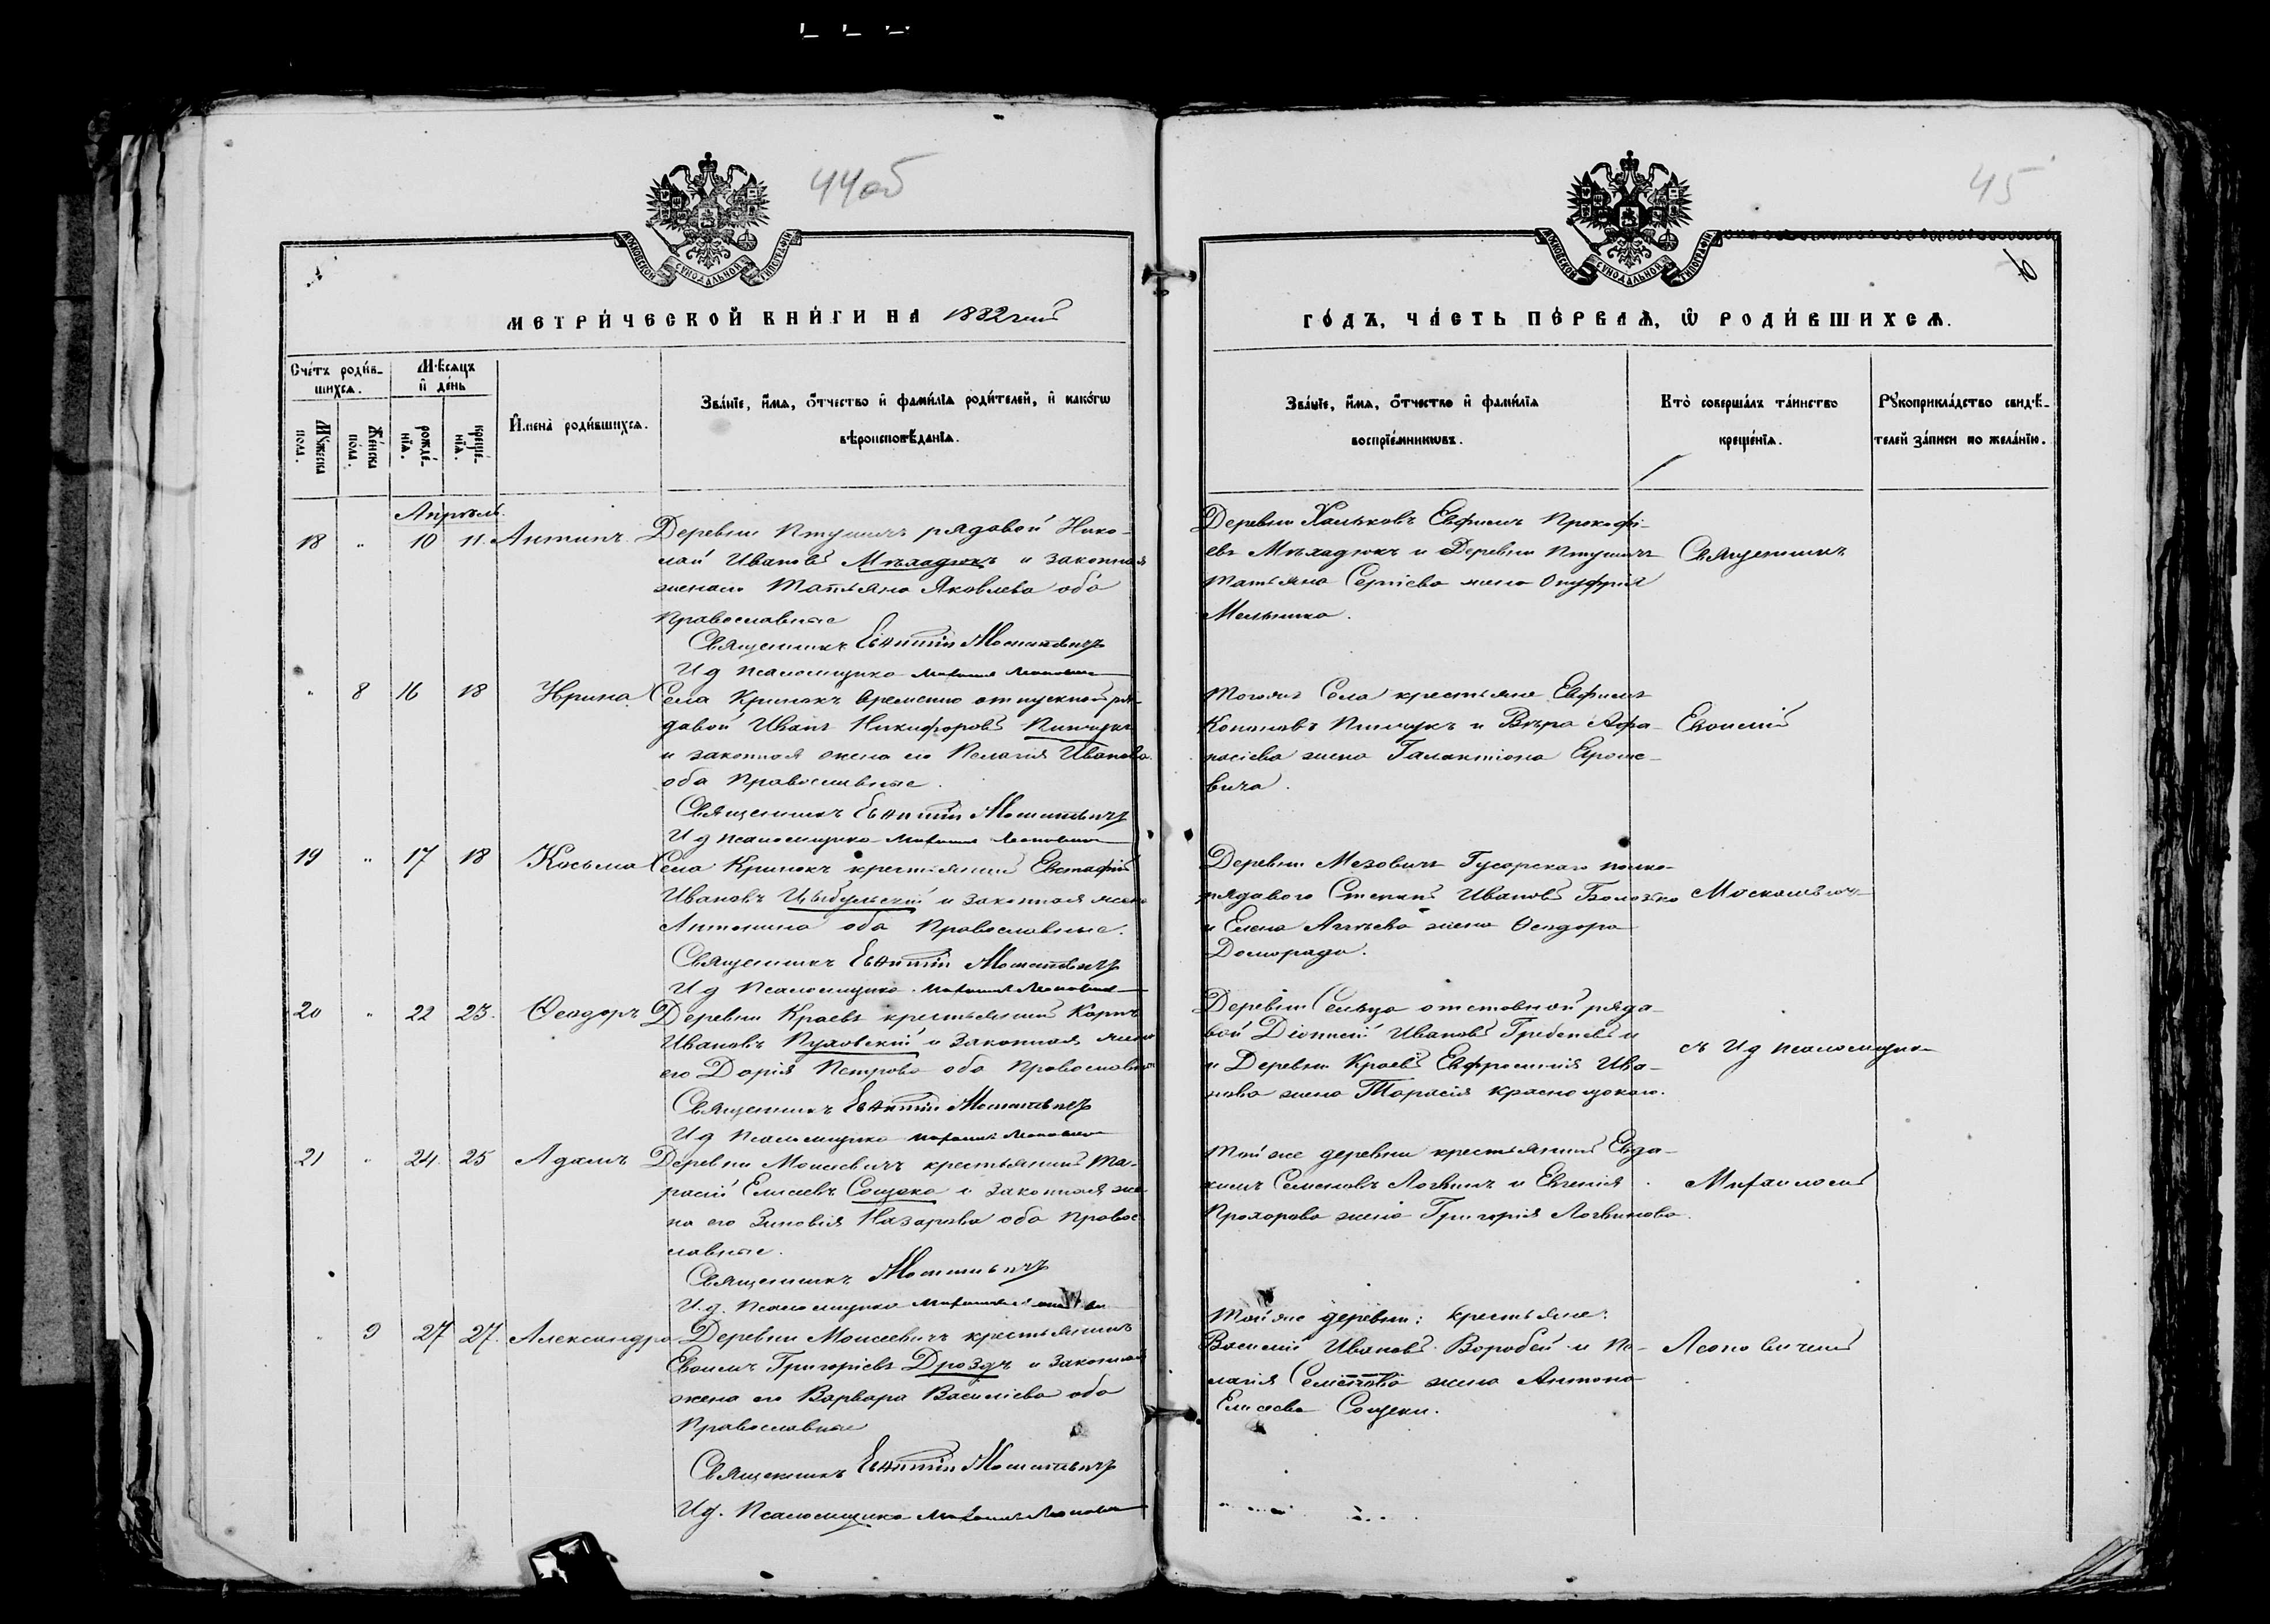 44об
МОСКОВСКОЙ СУНОДАЛЬНОЙ ТИПОГРАФІИ
МЕТРИ́ЧЕСКОЙ КНИ́ГИ НА 1882 годъ
Сче́тъ роди́в-
шихсѧ.
М҃ѣсѧцъ
и҆ де́нь
Му́жеска
пола.
Же́нска
по́ла.
рожде́-
нїѧ.
креще́-
нїѧ.
И҆мена̀ роди́вшихсѧ.
Зва́нїе, и҆́мѧ, ѻ҆́тчество и҆ фами́лїѧ роди́телей, и҆ како́гѡ
вѣроисповѣ́данїѧ.
Апрѣль.
18 " 10 11. Антипъ. Деревни Птушичъ рядовой Нико-
лай Ивановъ и законная
женаего Татьяна Яковлева оба
Православные
Священникъ Евѳимій Москалевичъ
И д Псаломщика Михаилъ Леонович
" 8 16 18 Ирина Села Кринокъ временно отпускной ря-
довой Иванъ Никифоровъ Пинчукъ
и законная жена его Пелагія Иванова
оба Православные.
Священникъ Евѳимій Москалевичъ
И д псаломщика Михаилъ Леонович
19 " 17 18 Косьма Села Кринокъ крестьянинъ Евстафій
Ивановъ Цыбульскій и законная жена
Антонина оба Православные.
Священникъ Евѳимій Москалевичъ
И д Псаломщика Михаилъ Леонович
20 " 22 23. Ѳеодоръ Деревни Краевъ крестьянинъ Карпъ
Ивановъ Пуховскій и законная жена
его Дарія Петрова оба Православные
Священникъ Евѳимій Москалевичъ
И д Псаломщика Михаилъ Леонович
21 " 24. 25 Адамъ Деревни Моисеевичъ крестьянинъ Та-
расій Елисеевъ Сощека и законная же-
на его Зиновія Назарова оба Право-
славные.
Священникъ Москалевичъ
И. д. Псаломщика Михаилъ
" 9 27 27. Александра Деревни Моисеевичъ крестьянинъ
Евѳимъ Григоріевъ Дроздъ и законная
жена его Варвара Василіева оба
Православные
Священникъ Евѳимій Москалевичъ
И д. Псаломщика Михаилъ Леонович
45
МОСКОВСКОЙ СУНОДАЛЬНОЙ ТИПОГРАФІИ
ГО́ДЪ, ЧА́СТЬ ПЕ́РВАѦ, Ѡ҆ РОДИ́ВШИХСѦ.
Зва́нїе, и҆́мѧ, ѻ҆́тчество и҆ фами́лїѧ
воспрїе́мникѡвъ.
Кто̀ соверша́лъ та́инство
креще́нїѧ.
Рꙋкоприкла́дство свидѣ́-
телей за́писи по жела́нїю.
Деревни Хальковъ Евфимъ Прокофі-
евъ и Деревни Птушичъ Священникъ
Татьяна Сергіева жена Онуфрія
Мельника.
тогожъ Села крестьяне Евфимъ
Кононовъ Пинчукъ и Вѣра Афа- Евѳимій
насіева жена Галактіона Ероше-
вича.
Деревни Мезовичъ Гусарскаго полка
рядового Степанъ Ивановъ Москалевичъ
и Елена жена Ѳеодора
Доморада.
Деревни Сельца отставной рядо-
вой Діонисій Ивановъ Гребеневъ и
и Деревни Краевъ Евфросинія Ива- съ И д псаломщика
нова жена Тарасія Краснощокаго.
той же деревни крестьянинъ Евдо-
кимъ Семеновъ Логвинъ и Евгенія Михаиломъ
Прохорова жена Григорія Логвинова.
той же деревни: крестьяне:
Василій Ивановъ Воробей и Пе- Леоновичемъ
лагія Семенова жена Антона
Елисеева Сощеки.